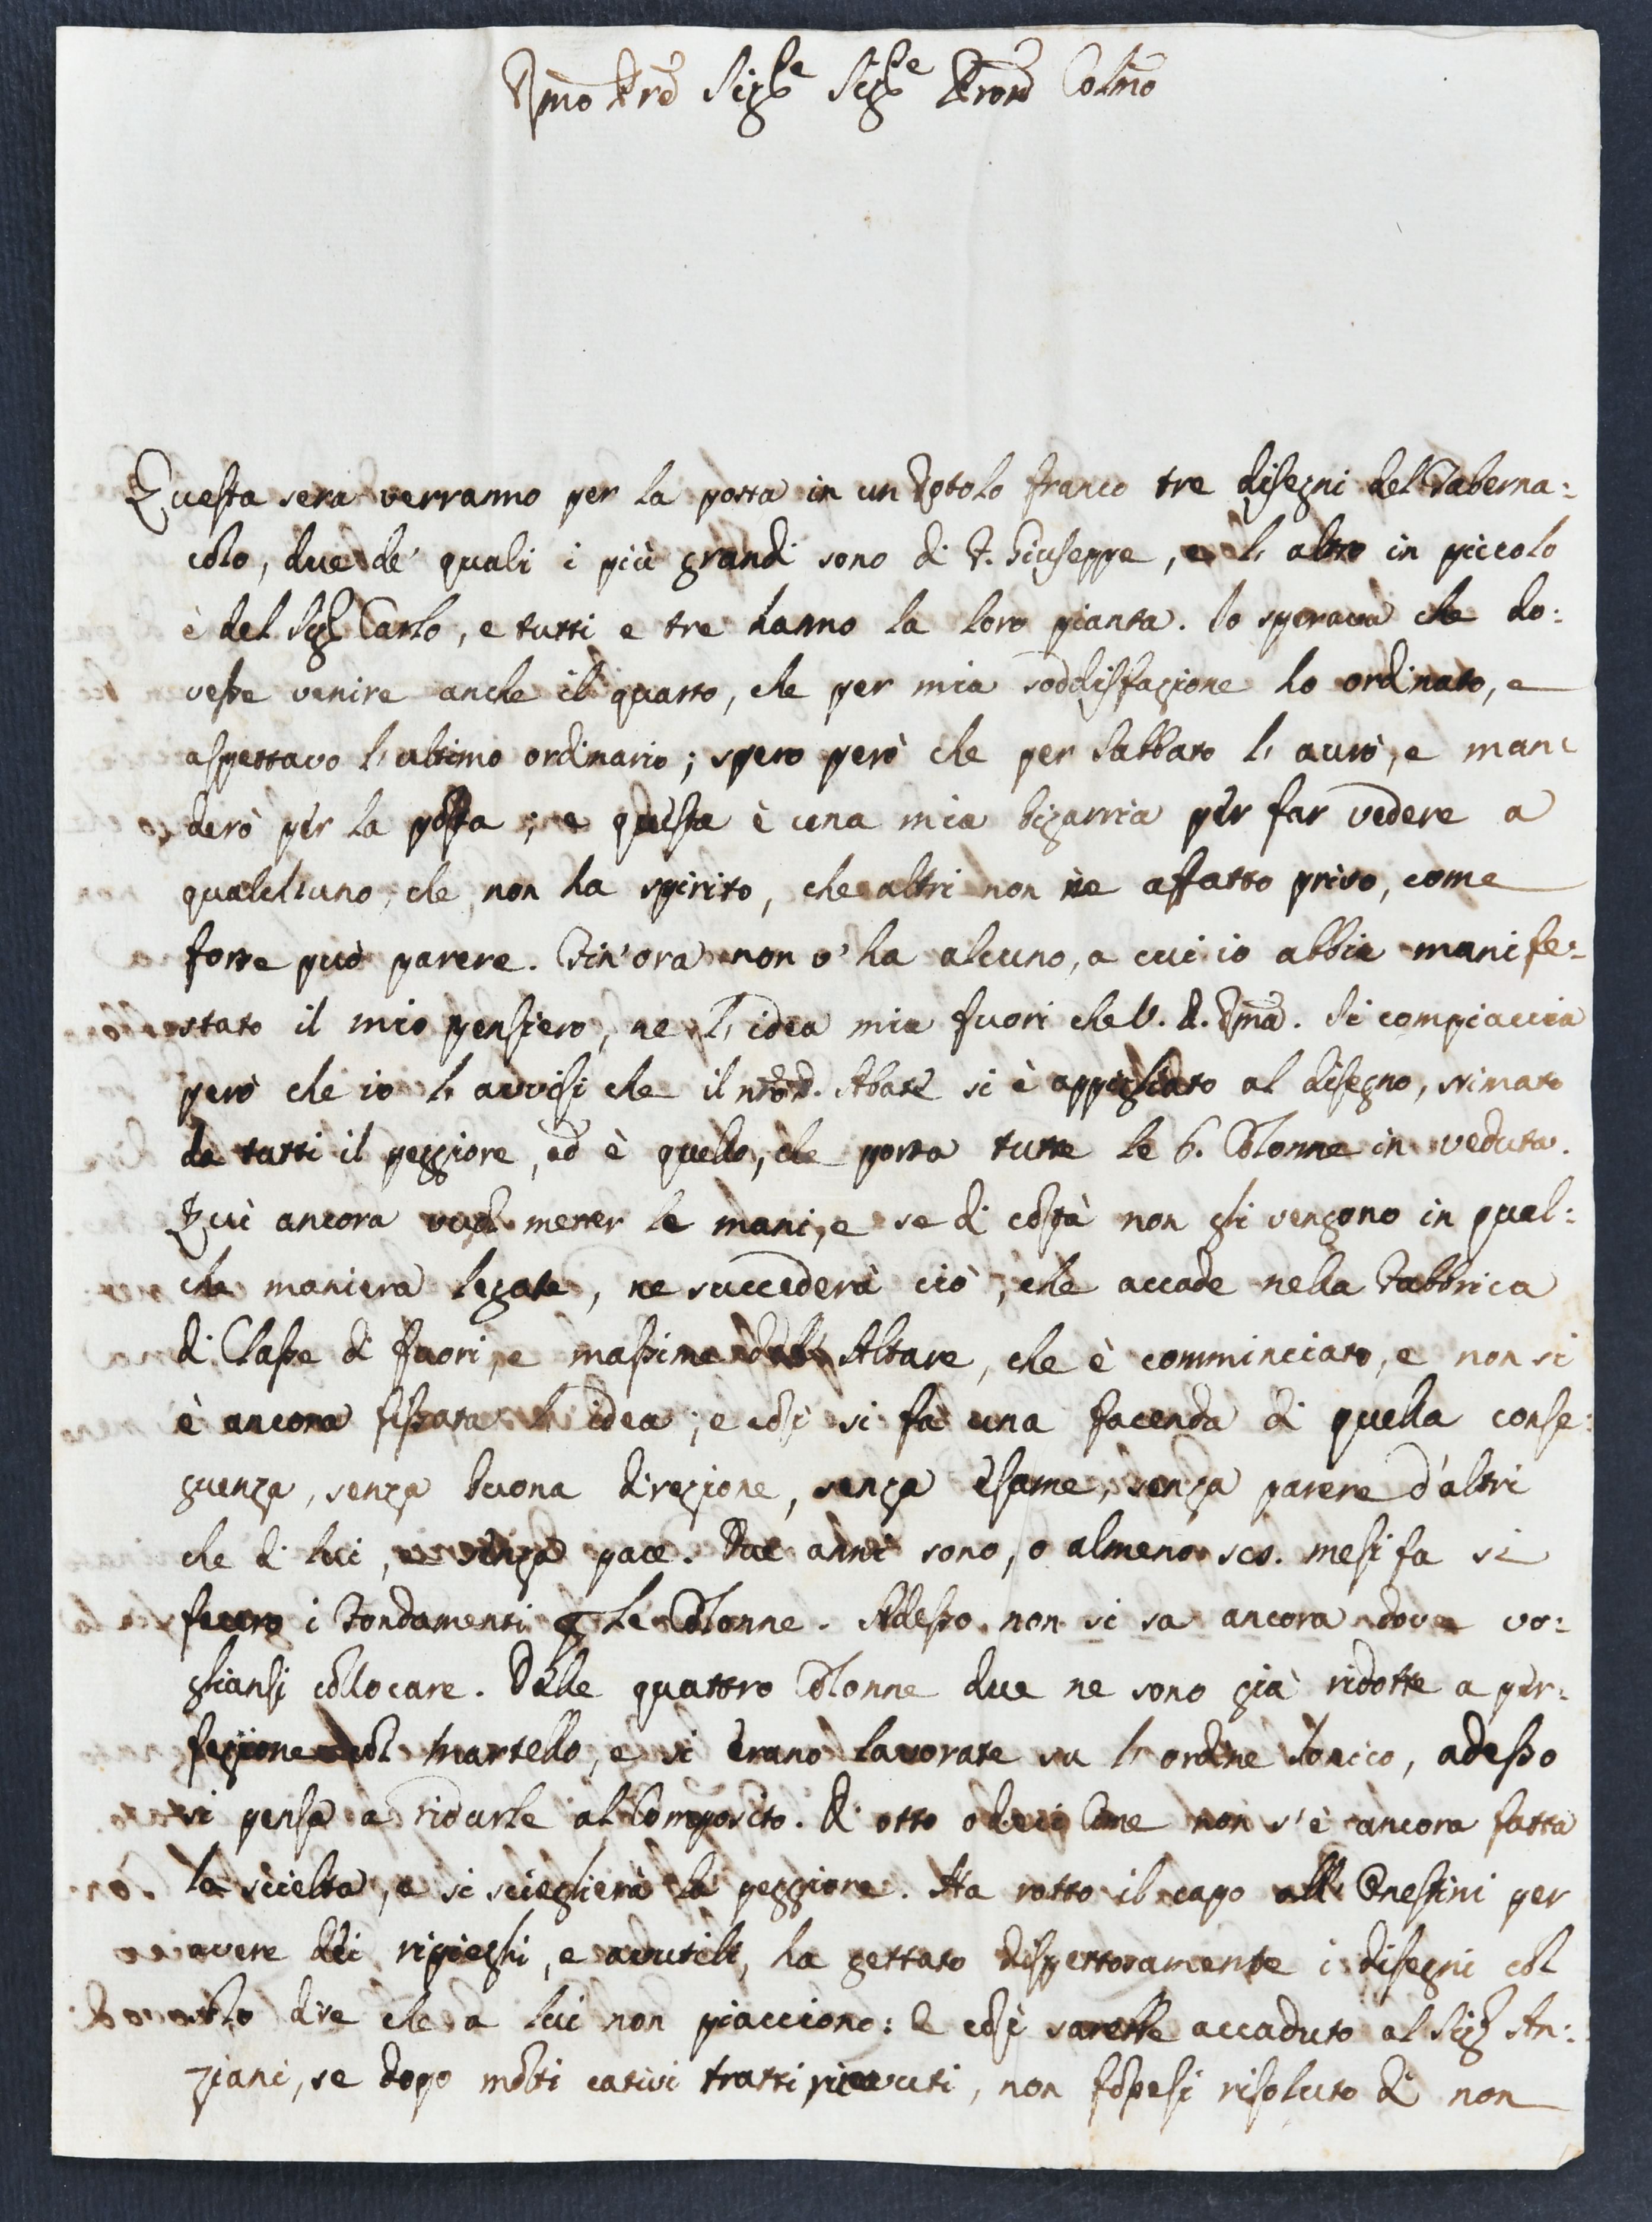 Rmo Pre Sigre Sigre Prone Colmo
Questa sera verranno per la posta in un Rotolo franco tre disegni del Taberna:
colo, due de' quali i più grandi sono di F. Giuseppe, e l'altro in piccolo
è del Sigr Carlo, e tutti e tre hanno la loro pianta. Io sperava che do:
vesse venire anche il quarto, che per mia soddisfazione ho ordinato, e
aspettavo l'ultimo ordinario; spero però che per Sabbato l'avrò, e man:
derò per la posta; e questa è una mia bizarria per far vedere a
qualchuno, che non ha spirito, che altri non ne affatto privo, come
forse può parere. Fin'ora non v'ha alcuno, a cui io abbia manife:
stato il mio pensiero, ne l'idea mia fuori che V. P. Rma. Si compiaccia
però che io l'avvisi che il nro P. Abate si è appigliato al disegno, stimato
da tutti il peggiore, ed è quello, che porta tutte le 6. Colonne in veduta.
Quì ancora vuol metter le mani, e se di costà non gli vengono in qual:
che maniera legate, ne succederà ciò, che accade nella Fabbrica
di Classe di fuori, e massime Altare, che è comminciato, e non si
è ancora fissata l'idea; e così si fà una facenda di quella conse:
guenza, senza buona direzione, senza esame, senza parere d'altri
che di lui, e senza pace. Due anni sono, o almeno mesi fa si
fecero i Fondamenti p le Colonne. Adesso non si sa ancora dove vo:
gliansi collocare. Delle quattro Colonne due ne sono già ridotte a per:
fezione col martello, e si erano lavorate su l'ordine Ionico, adesso
si pensa a ridurle al Composito. Di otto o dieci Cone non s'è ancora fatta
la scielta, e si scieglierà la peggiore. Ha rotto il capo all' Onestini per
avere dei ripieghi, e avutili, ha gettato dispettosamente i disegni col
solo dire che a lui non piacciono: E così sarebbe accaduto al Sigr An:
ziani, se dopo molti cativi tratti ricevuti, non fossesi risoluto di non